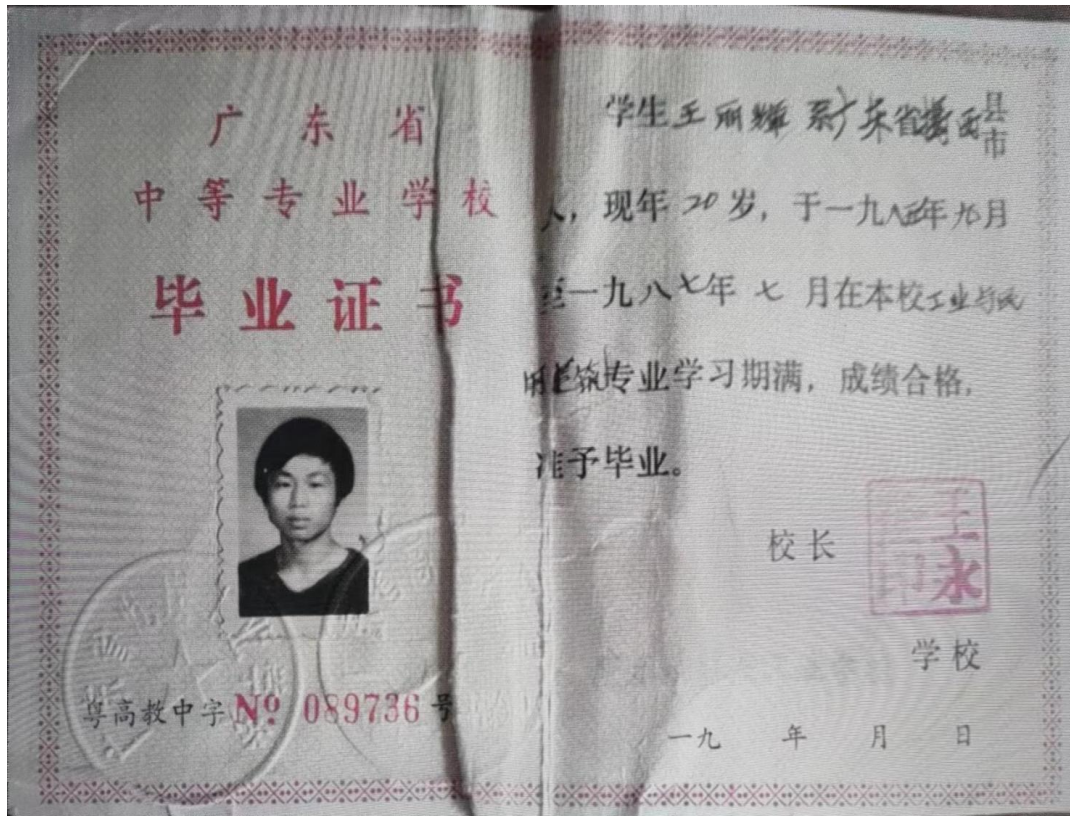 广东省
中等专业学校
毕业证书
粤高教中字 № 089736 号
学生王丽辉系广东省 县市
人，现年20岁，于一九八五年九月
至一九八七年七月在本校工业与民
用建筑专业学习期满，成绩合格，
准予毕业。
校长
王永
印
学校
一九 年 月 日